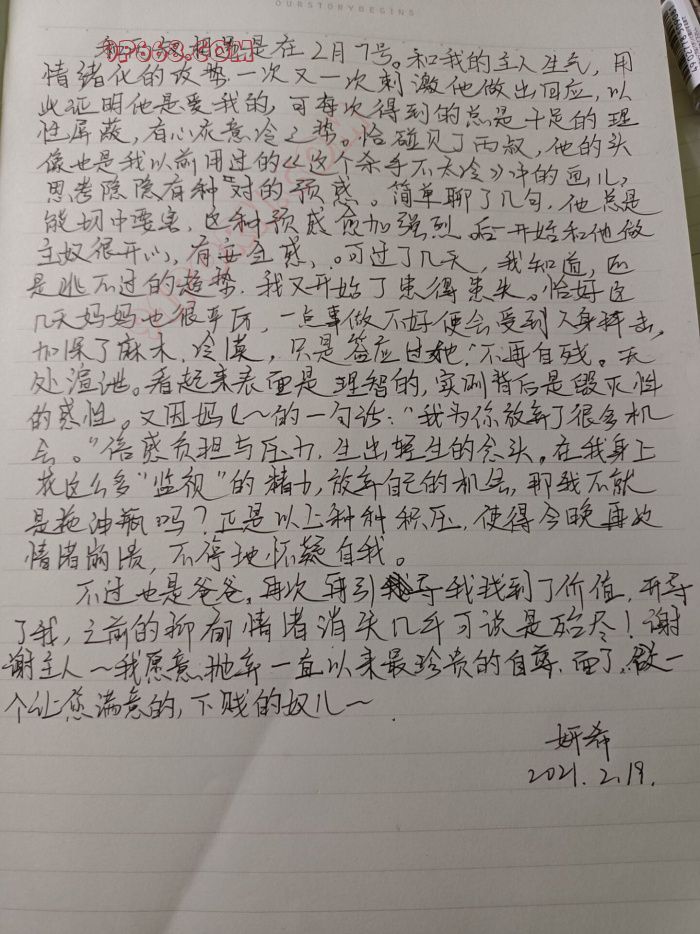 OURSTORYBEGINS
相遇是在2月7号。和我的主人生气,用
情绪化的攻势一次又一次刺激他做出回应,以
此证明他是爱我的,可每次得到的总是十足的理
性屏蔽,有心灰意冷之势。恰碰见了雨叔,他的头
像也是我以前用过的《这个杀手不太冷》中的画儿,
思考隐隐有种"对的预感。简单聊了几句,他总是
能切中要害,这种预感愈加强烈 后开始和他做
主奴很开心,有安全感,。可过了几天,我知道,
是逃不过的趋势,我又开始了患得患失。恰好这
几天妈妈也很严厉,一点事做不好便会受到人身抨击,
加深了麻木、冷漠,只是答应过她,不再自残。无
处渲泄。看起来表面是理智的,实则背后是毁灭性
的感性。又因妈~的一句话:"我为你放弃了很多机
会。"倍感负担与压力,生出轻生的念头。在我身上
花这么多"监视"的精力,放弃自己的机会,那我不就
是拖油瓶吗?正是以上种种积压,使得今晚再次
情绪崩溃,不停地怀疑自我。
不过也是爸爸,再次再引导我找到了价值,开导
了我,之前的抑郁情绪消失几乎可说是殆尽!谢
谢主人~我愿意抛弃一直以来最珍贵的自尊,面子,做一
个让您满意的,下贱的奴儿~
妍希
2021.2.19.